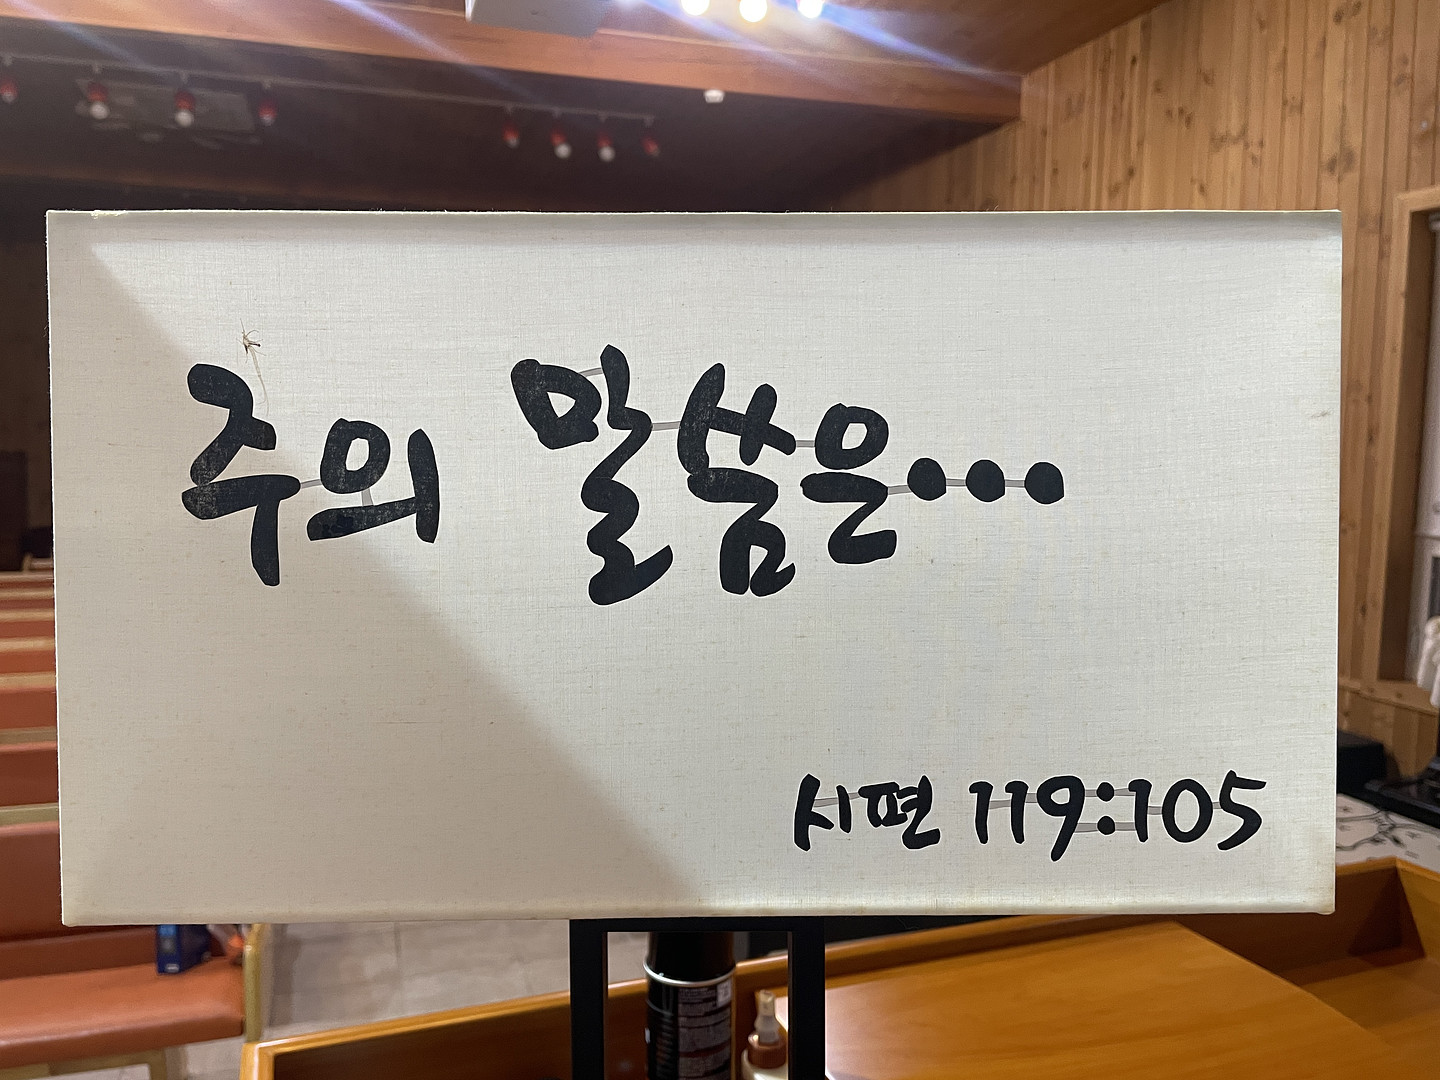 주의 말씀은•••
시편 119:105